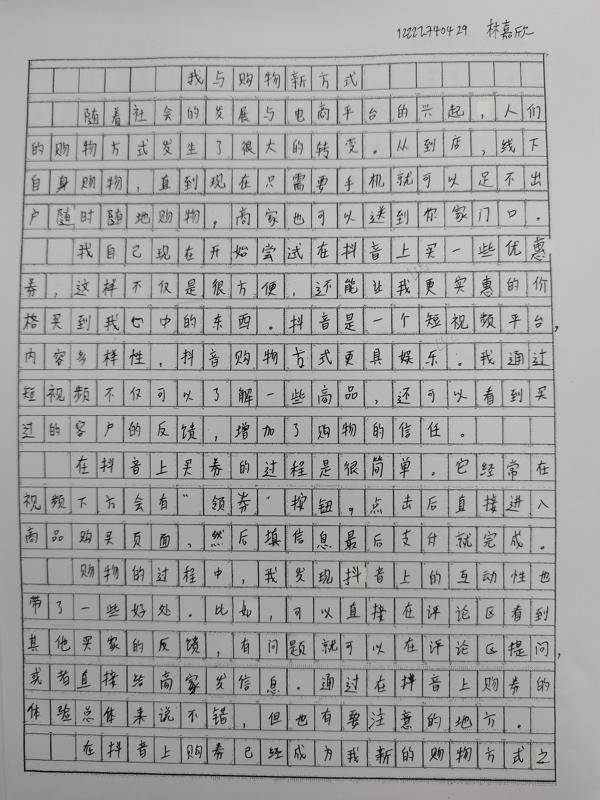 1222740429 林嘉欣
我与购物新方式
随着社会的发展与电商平台的兴起，人们
的购物方式发生了很大的转变。从到店，线下
自身购物，直到现在只需要手机就可以足不出
户随时随地购物，商家也可以送到你家门口。
我自己现在开始尝试在抖音上买一些优惠
券，这样不仅是很方便，还能让我更实惠的价
格买到我心中的东西。抖音是一个短视频平台，
内容多样性，抖音购物方式更具娱乐。我通过
短视频不仅可以了解一些商品，还可以看到买
过的客户的反馈，增加了购物的信任。
在抖音上买券的过程是很简单。它经常在
视频下方会有“领券”按钮，点击后直接进入
商品购买页面，然后填信息最后支付就完成。
购物的过程中，我发现抖音上的互动性也
带了一些好处。比如，可以直接在评论区看到
其他买家的反馈，有问题就可以在评论区提问，
或者直接给商家发信息。通过在抖音上购券的
体验总体来说不错，但也有要注意的地方。
在抖音上购券已经成为我新的购物方式之